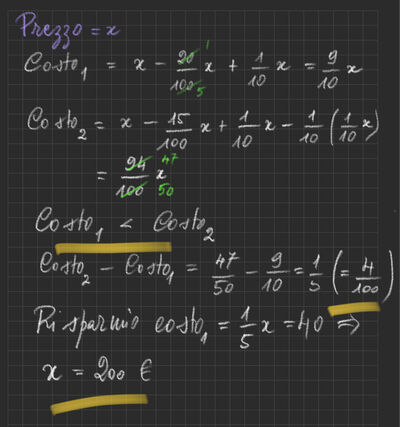 Prezzo = x
Costo₁ = x - 20/100 x + 1/10 x = 9/10 x
1
5
Costo₂ = x - 15/100 x + 1/10 x - 1/10 (1/10 x)
= 94/100 x
47
50
Costo₁ < Costo₂
Costo₂ - Costo₁ = 47/50 - 9/10 = 1/5 (= 4/100)
Risparmio costo₁ = 1/5 x = 40 ⇒
x = 200 €